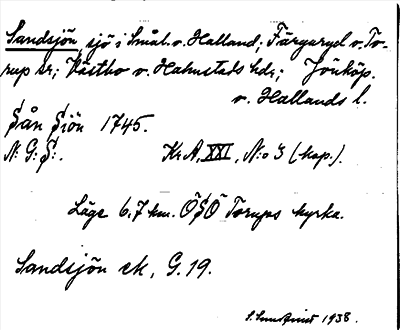 Sandsjön, sjö i Smål. o. Halland; Färgaryd o. To-
rup sr; Västbo o. Halmstads hdr; Jönköp.
o. Hallands l.
Sån Siön 1745.
N: G: S:. Kr A, XXI, N:o 3 (kop.).
Läge 6,7 km. ÖSÖ Torups kyrka.
Sandsjön ek, G. 19.
1938.